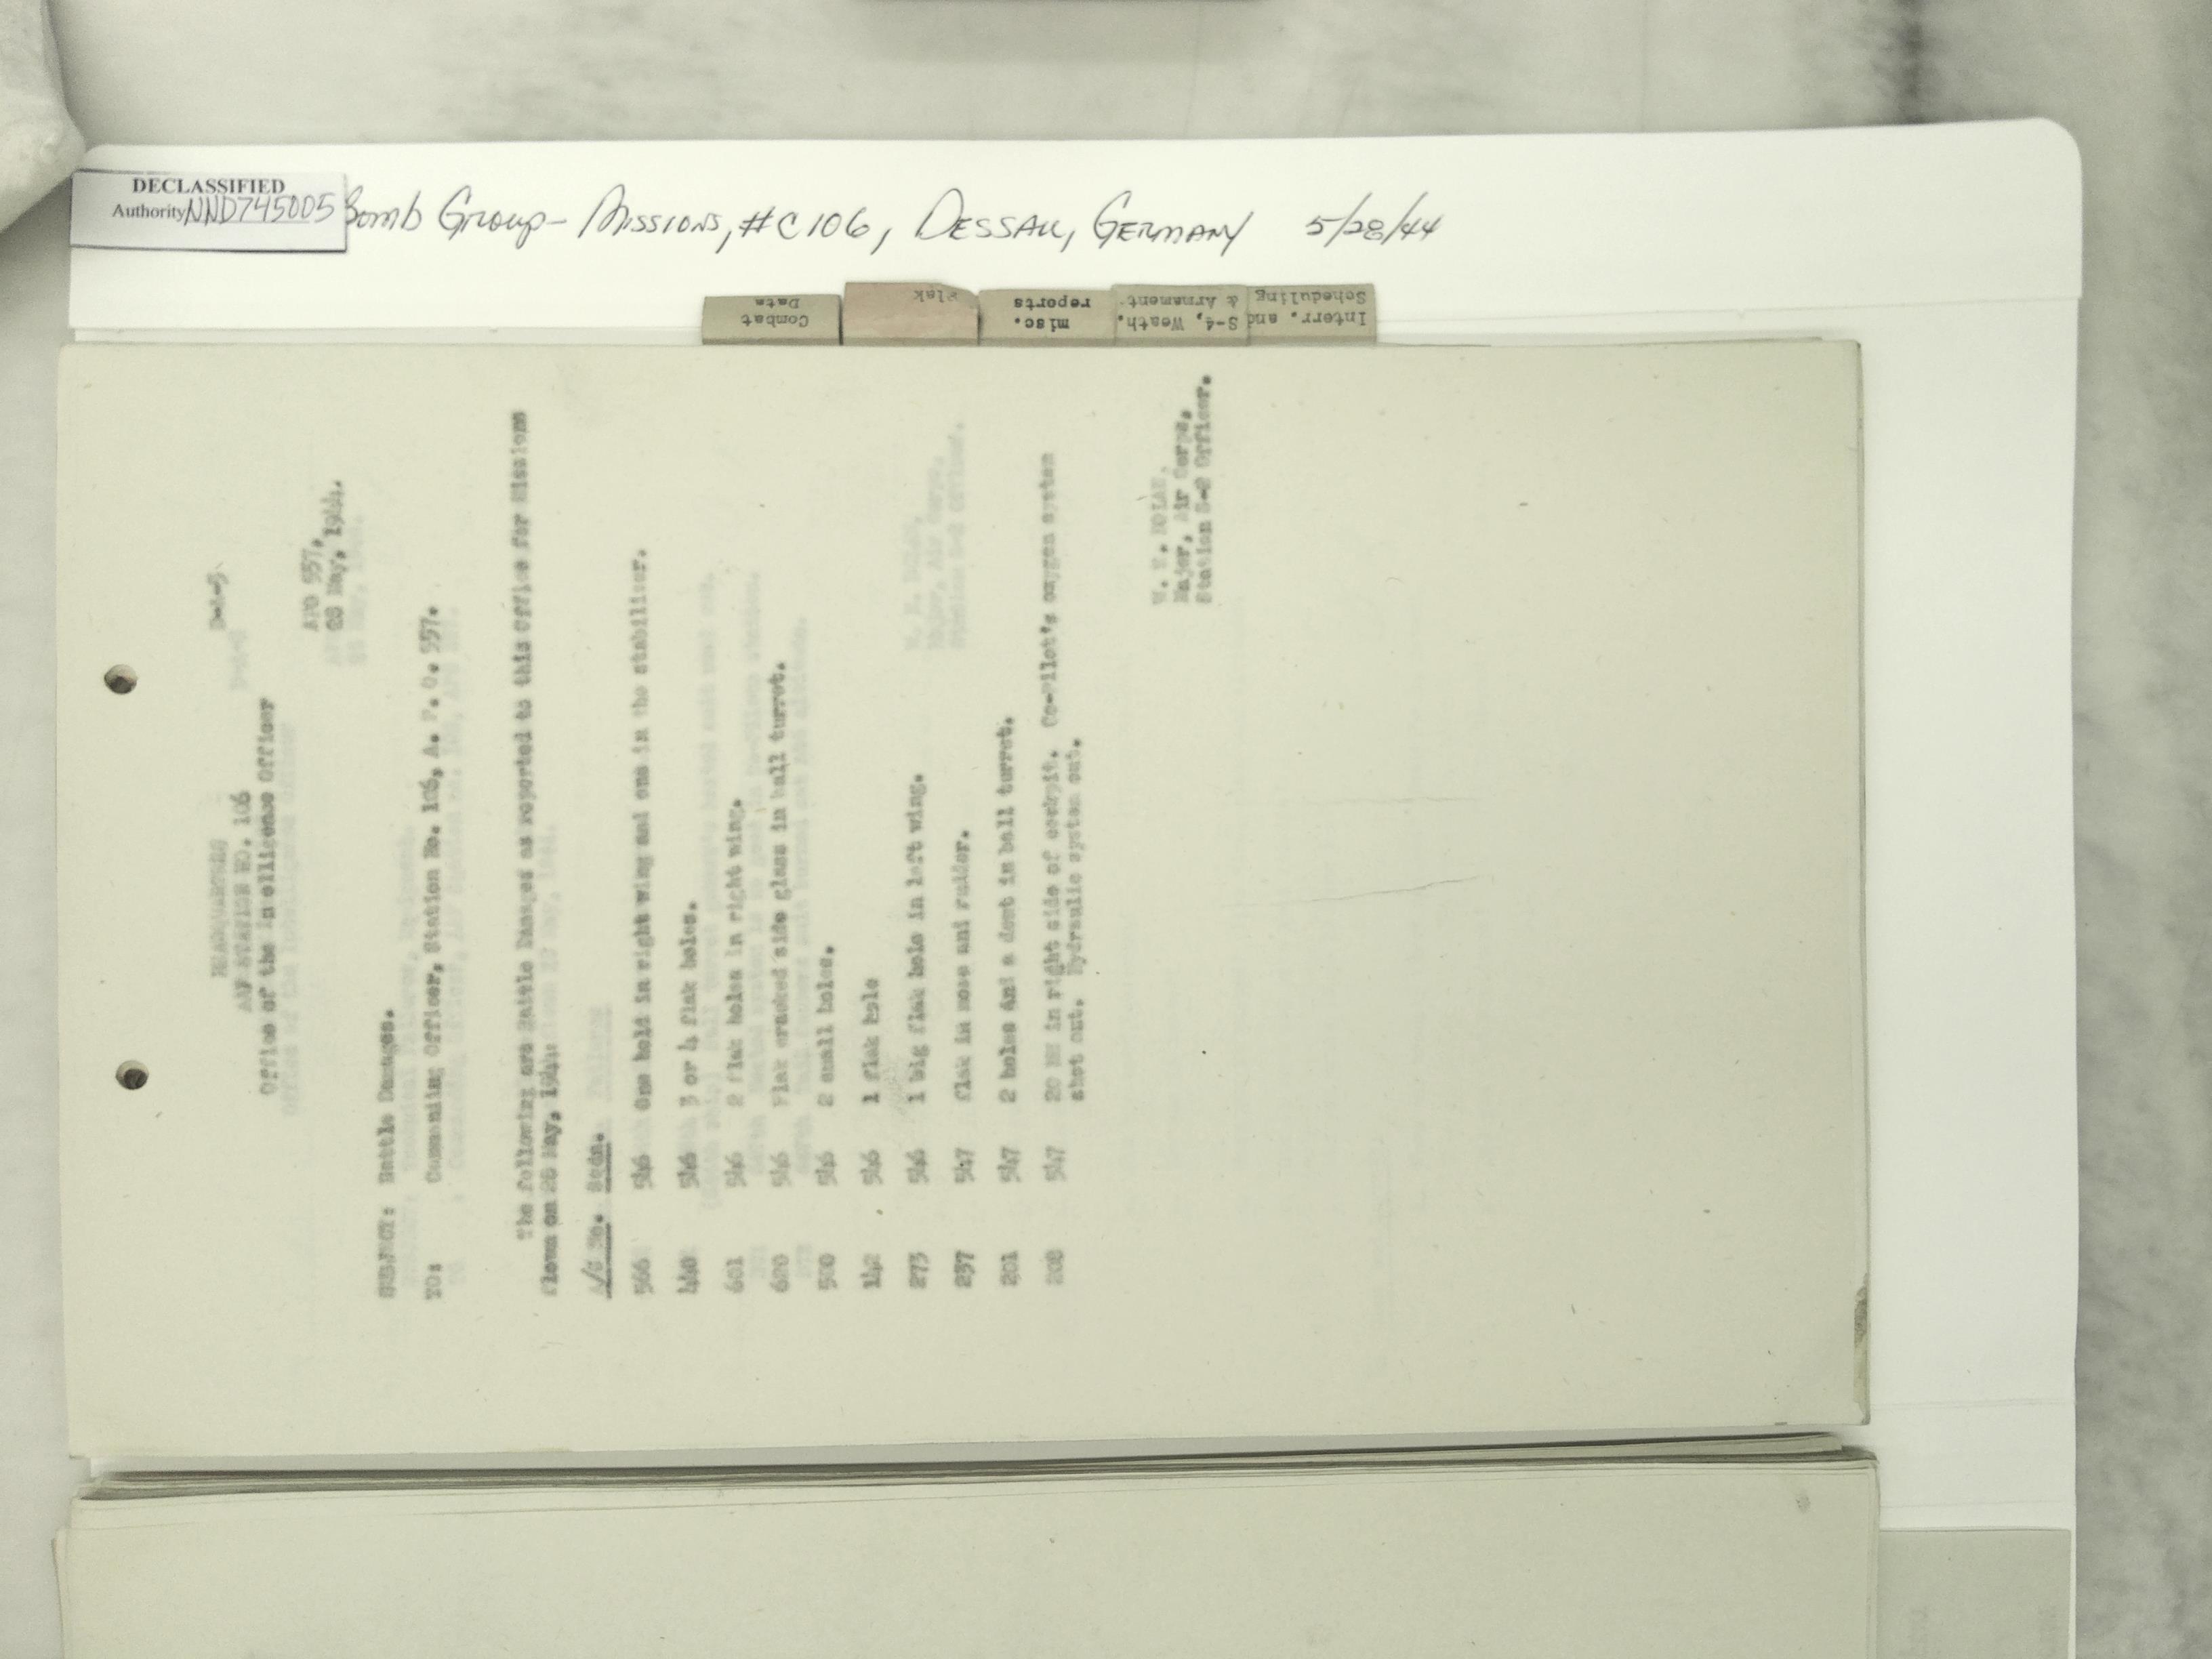 DECLASSIFIED
Authority NND745005
Bomb Group - Missions, #C106, Dessau, Germany 5/28/44
Combat Data
Flak
misc. reports
S-4, Weath. & Armament
Interr. and Scheduling
D-a-5
HEADQUARTERS
AAF STATION NO. 106
Office of the Intelligence Officer
APO 557,
28 May, 1944.
SUBJECT: Battle Damages.
TO: Commanding Officer, Station No. 106, A. P. O. 557.
The following are Battle Damages as reported to this Office for Missions
flown on 28 May, 1944:
A/C No. Sqdn.
566 546 One hold in right wing and one in the stabilizer.
440 546 3 or 4 flak holes.
601 546 2 flak holes in right wing.
620 546 Flak cracked side glass in ball turret.
500 546 2 small holes.
142 546 1 flak hole
273 546 1 big flak hole in left wing.
237 547 flak in nose and rudder.
201 547 2 holes and a dent in ball turret.
208 547 20 MM in right side of cockpit. Co-Pilot's oxygen system
shot out. Hydraulic system out.
Major, Air Corps,
Station S-2 Officer.